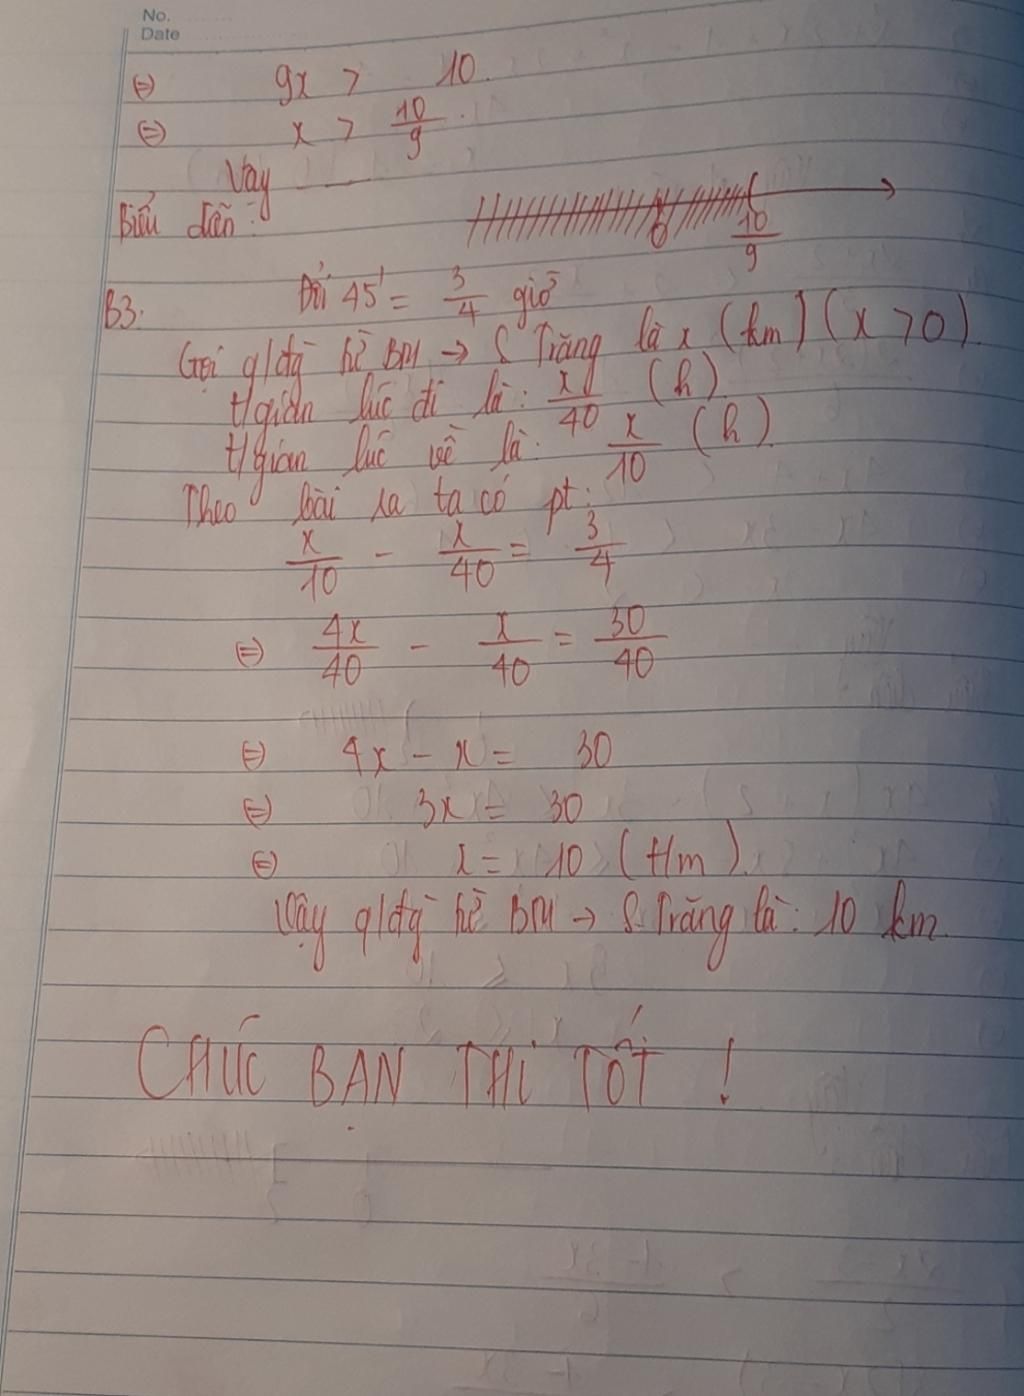 No.
Date
⇔ 9x > 10.
⇔ x > 10/9.
Vậy
Biểu diễn:
0 10/9
B3. Đổi 45' = 3/4 giờ
Gọi q/đg hề BM → S Trăng là x (km) (x > 0).
t/gian lúc đi là: x/40 (h)
t/gian lúc về là: x/10 (h)
Theo bài ra ta có pt:
x/10 - x/40 = 3/4
⇔ 4x/40 - x/40 = 30/40
⇔ 4x - x = 30
⇔ 3x = 30
⇔ x = 10 (t/m).
Vậy q/đg hề BM → S.Trăng là: 10 km.
CHÚC BẠN THI TỐT !